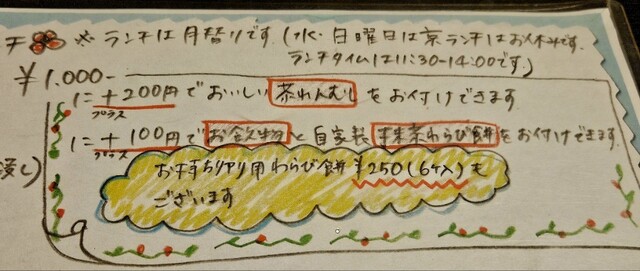 ※ランチは月替りです。(水・日曜日は京ランチはお休みです。
ランチタイムは11:30-14:00です。)
¥1.000-
に+200円でおいしい茶わんむしをお付けできます
プラス
に+100円でお飲物と自家製抹茶わらび餅をお付けできます.
プラス
お持ち帰り用わらび餅¥250(6ヶ入)も
ございます